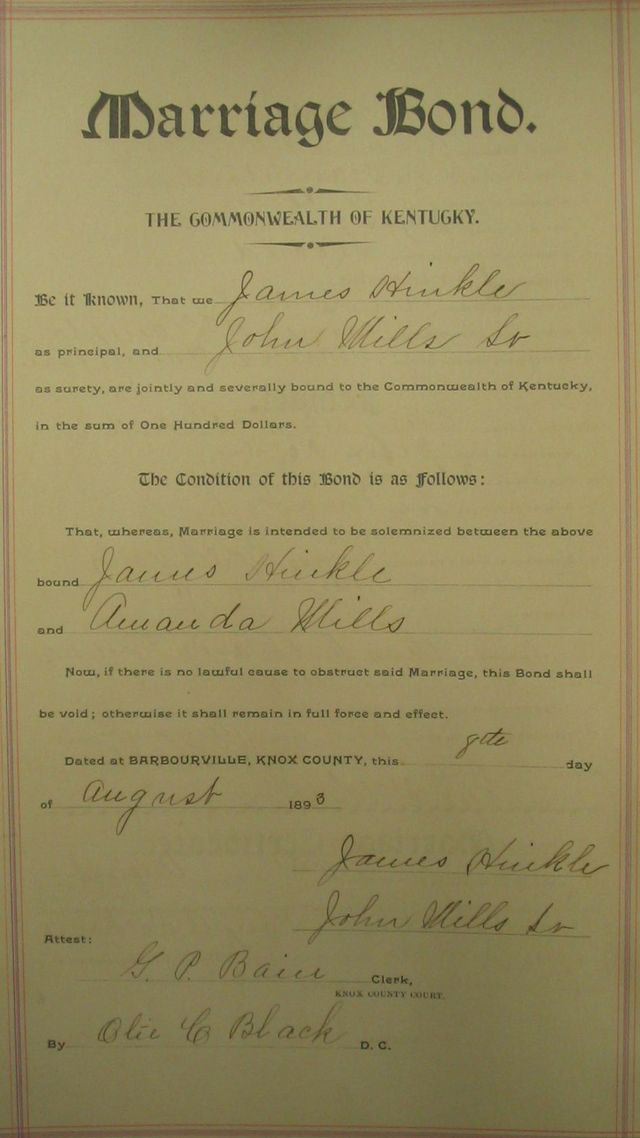 Marriage Bond.
THE COMMONWEALTH OF KENTUCKY.
Be it Known, That we James Hinkle
as principal, and John Mills Sr
as surety, are jointly and severally bound to the Commonwealth of Kentucky,
in the sum of One Hundred Dollars.
The Condition of this Bond is as Follows:
That, whereas, Marriage is intended to be solemnized between the above
bound James Hinkle
and Amanda Mills
Now, if there is no lawful cause to obstruct said Marriage, this Bond shall
be void; otherwise it shall remain in full force and effect.
Dated at BARBOURVILLE, KNOX COUNTY, this 8th day
of August 1893
James Hinkle
John Mills Sr
Attest:
G. P. Bain Clerk,
KNOX COUNTY COURT.
By Olie C Black D. C.